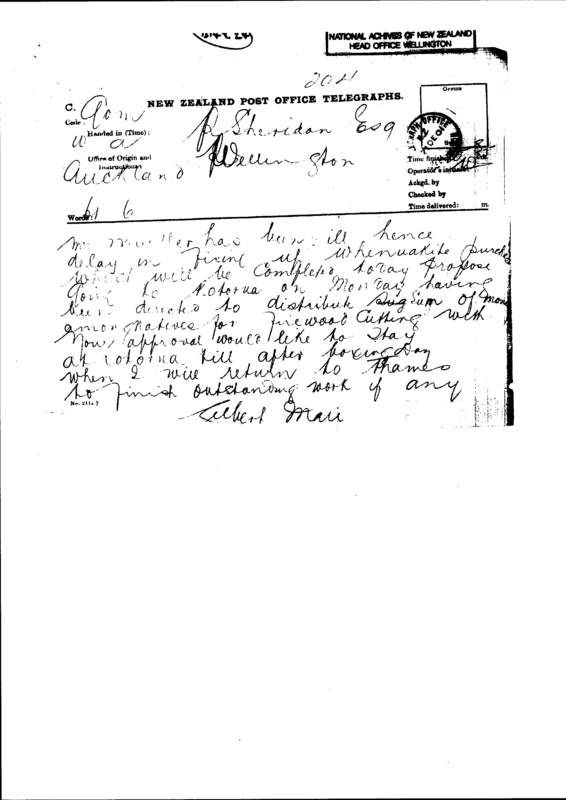 NATIONAL ACHIVES OF NEW ZEALAND
HEAD OFFICE WELLINGTON
204
Office
C.
NEW ZEALAND POST OFFICE TELEGRAPHS.
Code
Gov
Handed in (Time):
P Sheridan Esq
Office of Origin and
Instructions
Wellington
Auckland
Time finished
Operator's initials
Ackgd. by
Checked by
Time delivered: m.
Words: 61 6
Mr has been ill hence
delay in fixing up Whenuakite purchase
which will be Completed today propose
going to Rotorua on Monday having
been directed to distribute sum of money
among Natives for firewood Cutting with
your approval would like to stay
at rotorua till after boxing day
when I will return to thames
to finish outstanding work if any
Gilbert Mair